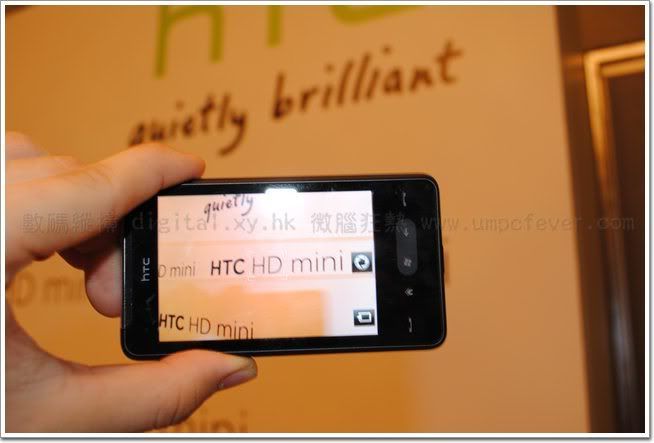 HTC
quietly brilliant
數碼縱橫 digital.xy.hk 微腦狂熱 www.umpcfever.com
hTC
quietly
D mini HTC HD mini
HTC HD mini
D mini
mini